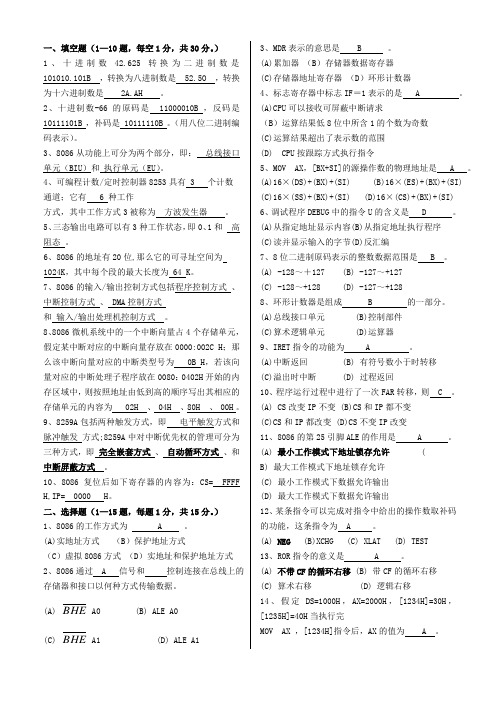 一、填空题(1—10题，每空1分，共30分。)
1、十进制数 42.625 转换为二进制数是
101010.101B ，转换为八进制数是 52.50 ，转换
为十六进制数是 2A.AH 。
2、十进制数-66的原码是 11000010B ，反码是
10111101B ，补码是 10111110B 。(用八位二进制编
码表示)。
3、8086从功能上可分为两个部分，即： 总线接口
单元(BIU) 和 执行单元(EU)。
4、可编程计数/定时控制器8253具有 3 个计数
通道；它有 6 种工作
方式，其中工作方式3被称为 方波发生器 。
5、三态输出电路可以有3种工作状态，即0、1和 高
阻态 。
6、8086的地址有20位,那么它的可寻址空间为
1024K，其中每个段的最大长度为 64 K。
7、8086的输入/输出控制方式包括程序控制方式 、
中断控制方式 、 DMA控制方式
和 输入/输出处理机控制方式 。
8、8086微机系统中的一个中断向量占4个存储单元，
假定某中断对应的中断向量存放在0000:002C H；那
么该中断向量对应的中断类型号为 0B H，若该向
量对应的中断处理子程序放在0080：0402H开始的内
存区域中，则按照地址由低到高的顺序写出其相应的
存储单元的内容为 02H 、 04H 、80H 、 00H 。
9、8259A包括两种触发方式，即 电平触发方式和
脉冲触发 方式;8259A中对中断优先权的管理可分为
三种方式，即 完全嵌套方式 、自动循环方式 、和
中断屏蔽方式 。
10、8086复位后如下寄存器的内容为：CS= FFFF
H,IP= 0000 H。
二、选择题(1—15题，每题1分，共15分。)
1、8086的工作方式为 A 。
(A)实地址方式 (B)保护地址方式
(C)虚拟8086方式 (D)实地址和保护地址方式
2、8086通过 A 信号和 控制连接在总线上的
存储器和接口以何种方式传输数据。
(A) BHE A0 (B) ALE A0
(C) BHE A1 (D) ALE A1
3、MDR表示的意思是 B 。
(A)累加器 (B)存储器数据寄存器
(C)存储器地址寄存器 (D)环形计数器
4、标志寄存器中标志IF＝1表示的是 A 。
(A)CPU可以接收可屏蔽中断请求
(B)运算结果低8位中所含1的个数为奇数
(C)运算结果超出了表示数的范围
(D) CPU按跟踪方式执行指令
5、MOV AX，[BX+SI]的源操作数的物理地址是 A 。
(A)16×(DS)+(BX)+(SI) (B)16×(ES)+(BX)+(SI)
(C)16×(SS)+(BX)+(SI) (D)16×(CS)+(BX)+(SI)
6、调试程序DEBUG中的指令U的含义是 D 。
(A)从指定地址显示内容(B)从指定地址执行程序
(C)读并显示输入的字节(D)反汇编
7、8位二进制原码表示的整数数据范围是 B 。
(A) -128～＋127 (B) -127～+127
(C) -128～+128 (D) -127～+128
8、环形计数器是组成 B 的一部分。
(A)总线接口单元 (B)控制部件
(C)算术逻辑单元 (D)运算器
9、IRET指令的功能为 A 。
(A)中断返回 (B) 有符号数小于时转移
(C)溢出时中断 (D) 过程返回
10、程序运行过程中进行了一次FAR转移，则 C 。
(A) CS改变IP不变 (B)CS和IP都不变
(C)CS和IP都改变 (D)CS不变IP改变
11、8086的第25引脚ALE的作用是 A 。
(A) 最小工作模式下地址锁存允许 (
B) 最大工作模式下地址锁存允许
(C) 最小工作模式下数据允许输出
(D) 最大工作模式下数据允许输出
12、某条指令可以完成对指令中给出的操作数取补码
的功能，这条指令为 A 。
(A) NEG (B)XCHG (C) XLAT (D) TEST
13、ROR指令的意义是 A 。
(A) 不带CF的循环右移 (B) 带CF的循环右移
(C) 算术右移 (D) 逻辑右移
14、假定 DS=1000H，AX=2000H，[1234H]=30H，
[1235H]=40H当执行完
MOV AX ,[1234H]指令后，AX的值为 A 。